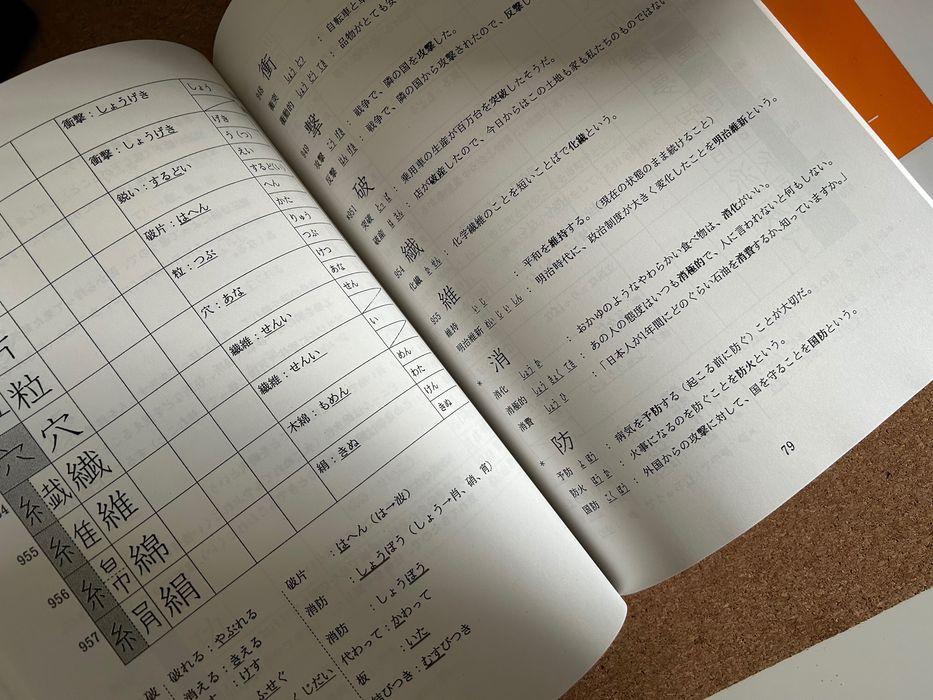 衝撃：しょうげき しょう
衝撃：しょうげき げき
う（つ）
鋭い：するどい えい
するど(い)
破片：はへん へん
かた
粒：つぶ りゅう
つぶ
穴：あな けつ
あな
繊維：せんい せん
繊維：せんい い
木綿：もめん めん
わた
絹：きぬ けん
きぬ
粒
穴 穴
糸 繊
955 糸 隹 維
956 糸 帛 綿
957 糸 絹
破
破れる：やぶれる
消える：きえる
けす
ふせぐ
くじだい
破片：はへん（は→波）
消防：しょうぼう（しょう→肖、硝、宵）
消防：しょうぼう
代わって：かわって
板：いた
結びつき：むすびつき
948 衝
衝突 しょう とつ：自転車と
衝動的 しょう どう てき：品物がとても安
949 撃
攻撃 こう げき：戦争で、隣の国を攻撃した。
反撃 はん げき：戦争で、隣の国から攻撃されたので、反撃し
*951 破
突破 とっ ぱ：乗用車の生産が百万台を突破したそうだ。
破産 は さん：店が破産したので、今日からはこの土地も家も私たちのものではない
954 繊
化繊 か せん：化学繊維のことを短いことばで化繊という。
955 維
維持 い じ：平和を維持する。（現在の状態のまま続けること）
明治維新 めい じ い しん：明治時代に、政治制度が大きく変化したことを明治維新という。
* 消
消化 しょう か：おかゆのようなやわらかい食べ物は、消化がいい。
消極的 しょう きょく てき：あの人の態度はいつも消極的で、人に言われないと何もしない。
消費 しょう ひ：「日本人が1年間にどのぐらい石油を消費するか、知っていますか。」
* 防
予防 よ ぼう：病気を予防する（起こる前に防ぐ）ことが大切だ。
防火 ぼう か：火事になるのを防ぐことを防火という。
国防 こく ぼう：外国からの攻撃に対して、国を守ることを国防という。
79